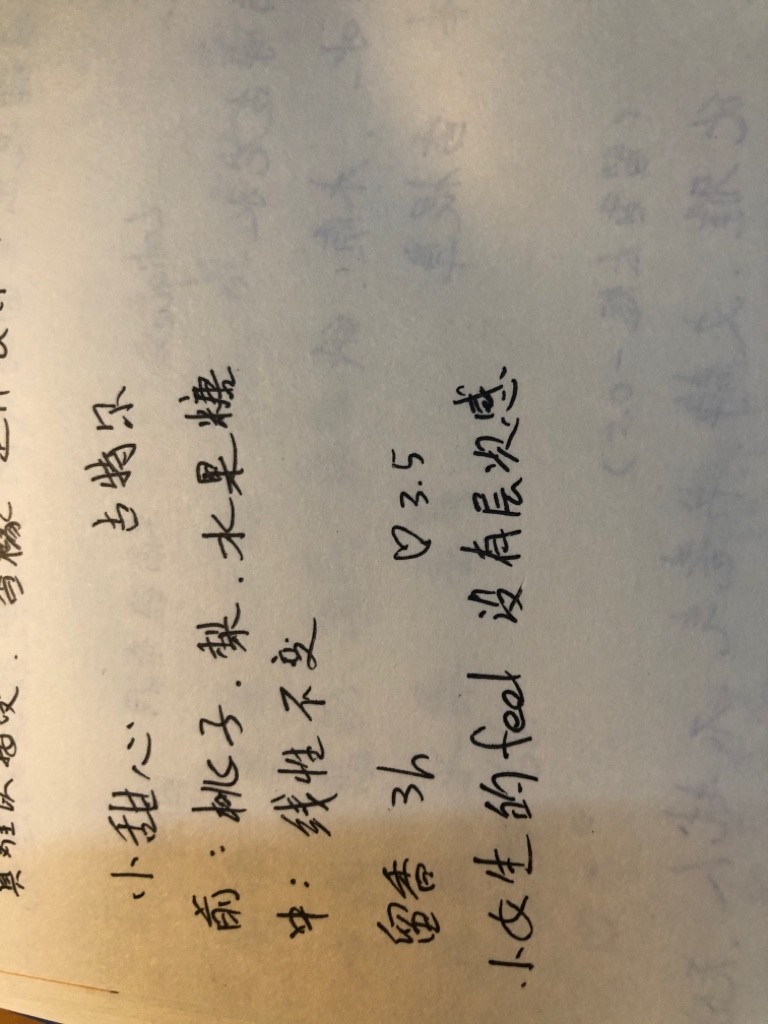 小甜心 古特尔
前：桃子．梨．水果糖
中：线性不变
留香 3h ♡3.5
小女生的feel 没有层次感、